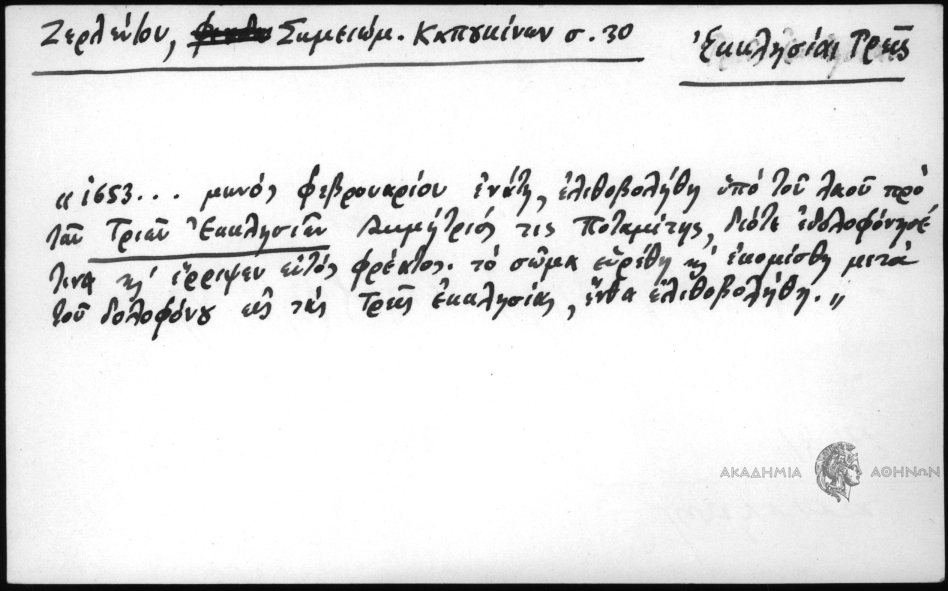 Ζερλέντου, Σημειώμ. Καπουκίνων σ. 30
Ἐκκλησίαι Τρεῖς
„ 1653... μηνός φεβρουαρίου ἐνάτῃ, ἐλιθοβολήθη ὑπό τοῦ λαοῦ πρό
τῶν Τριῶν Ἐκκλησιῶν Δημήτριός τις Ποταμίτης, διότι ἐδολοφόνησέ
τινα κ' ἔρριψεν ἐντός φρέατος. τό σῶμα εὑρέθη κ' ἐκομίσθη μετά
τοῦ δολοφόνου εἰς τάς Τρεῖς ἐκκλησίας, ἔνθα ἐλιθοβολήθη. „
ΑΚΑΔΗΜΙΑ ΑΘΗΝΩΝ